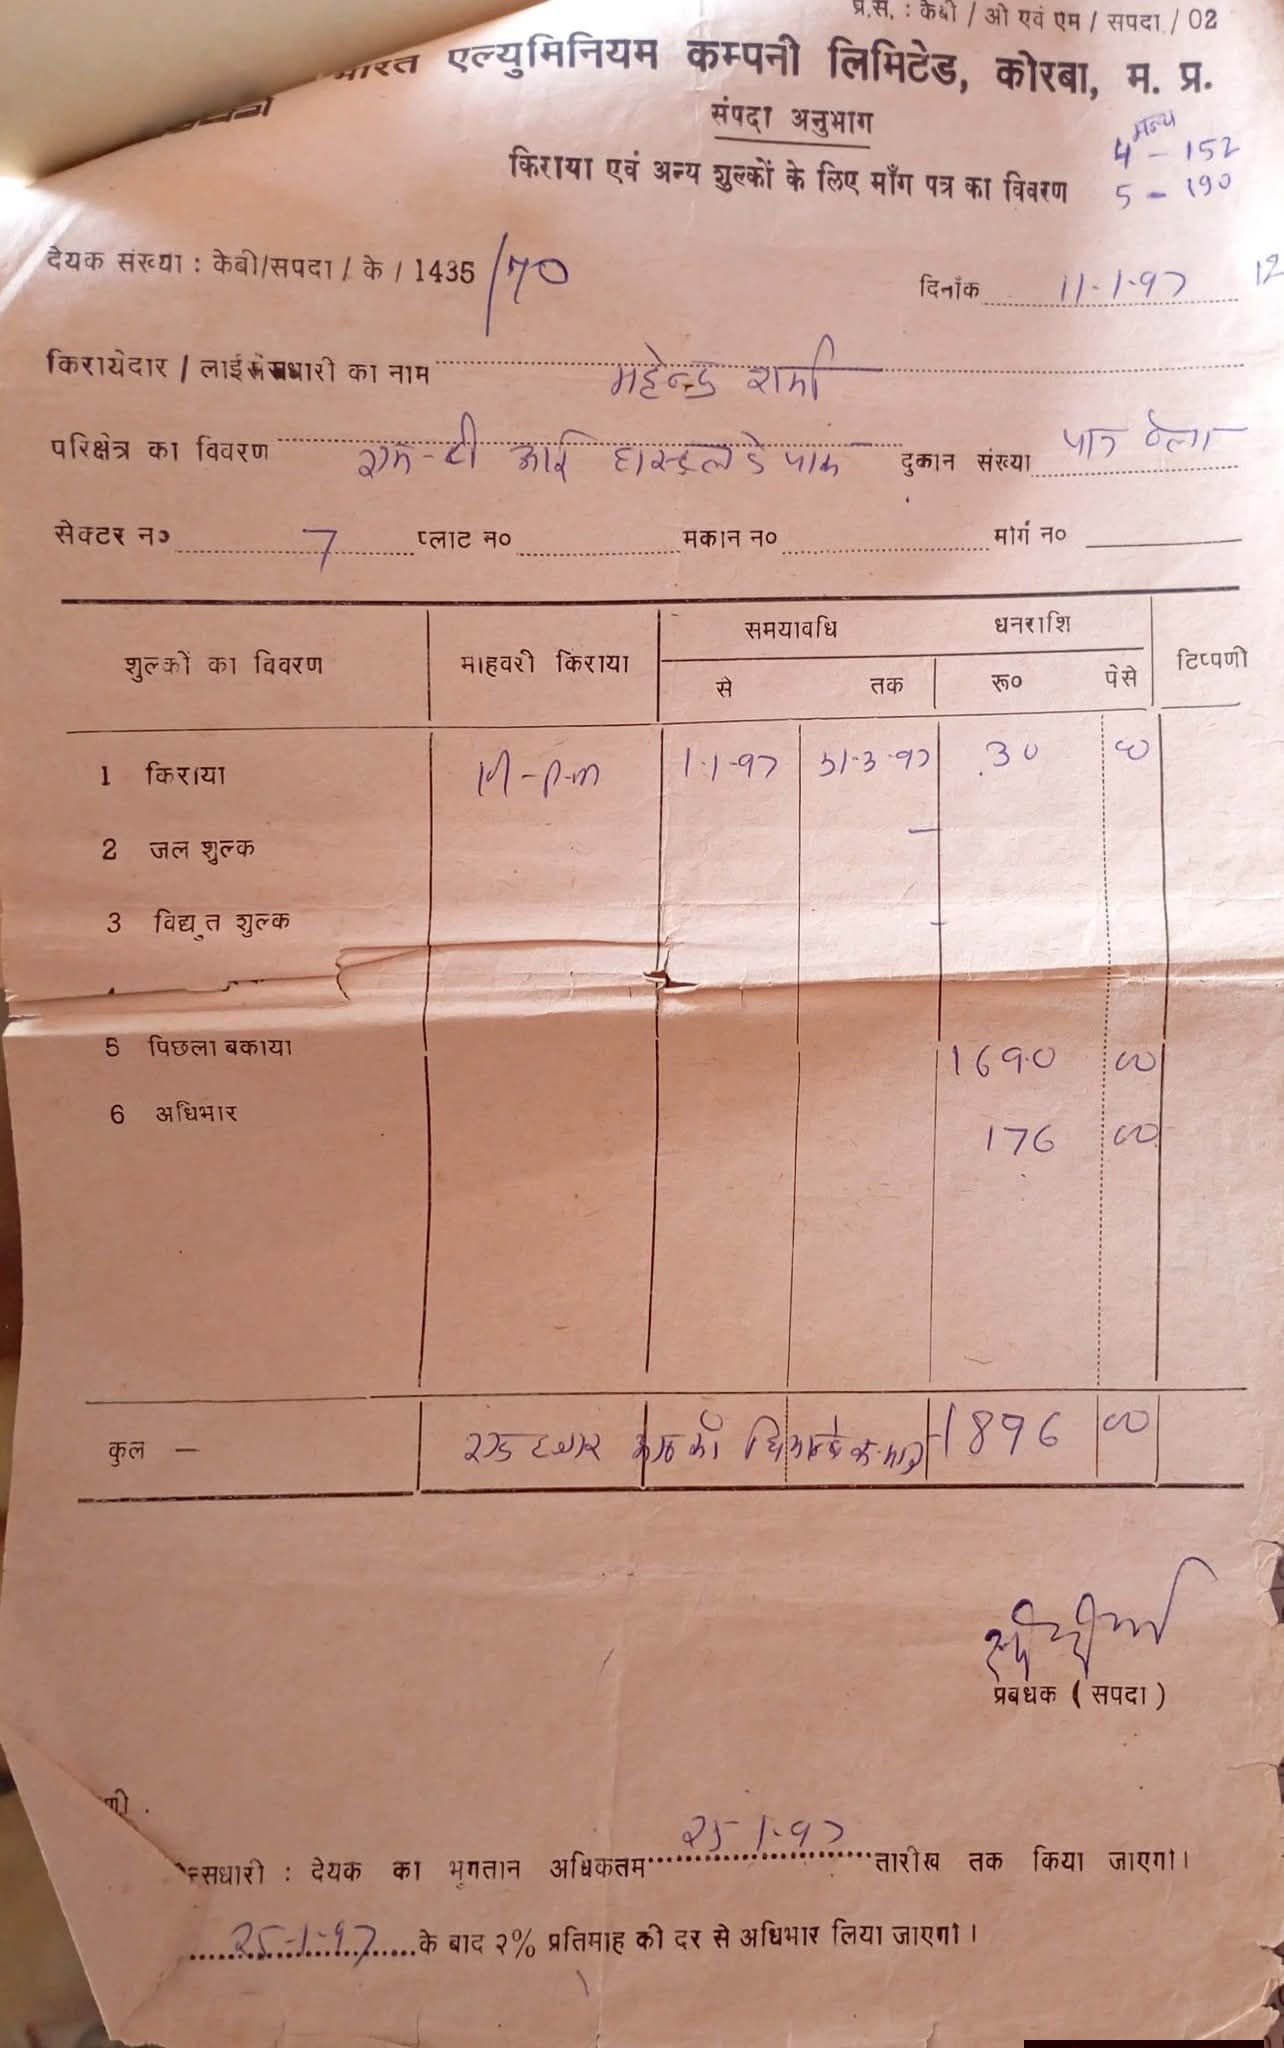 प्र.स. : केबी / ओ एवं एम / सपदा / 02
भारत एल्युमिनियम कम्पनी लिमिटेड, कोरबा, म. प्र.
संपदा अनुभाग
किराया एवं अन्य शुल्कों के लिए माँग पत्र का विवरण
4 - 152
5 - 190
देयक संख्या : केबी/सपदा / के / 1435 /70
दिनाँक 11-1-97 12
किरायेदार / लाईसेंसधारी का नाम महेन्द्र शर्मा
परिक्षेत्र का विवरण दुकान संख्या पान ठेला
सेक्टर न० 7 प्लाट न० मकान न० मार्ग न०
शुल्कों का विवरण माहवरी किराया समयावधि धनराशि टिप्पणी
से तक रू० पैसे
1 किराया 1-1-97 31-3-97 30 00
2 जल शुल्क -
3 विद्युत शुल्क -
5 पिछला बकाया 1690 00
6 अधिभार 176 00
कुल — एक हजार आठ सौ 1896 00
प्रबधक ( सपदा )
णी .
न्सधारी : देयक का भुगतान अधिकतम 25-1-97 तारीख तक किया जाएगा।
25-1-97 के बाद २% प्रतिमाह की दर से अधिभार लिया जाएगा।